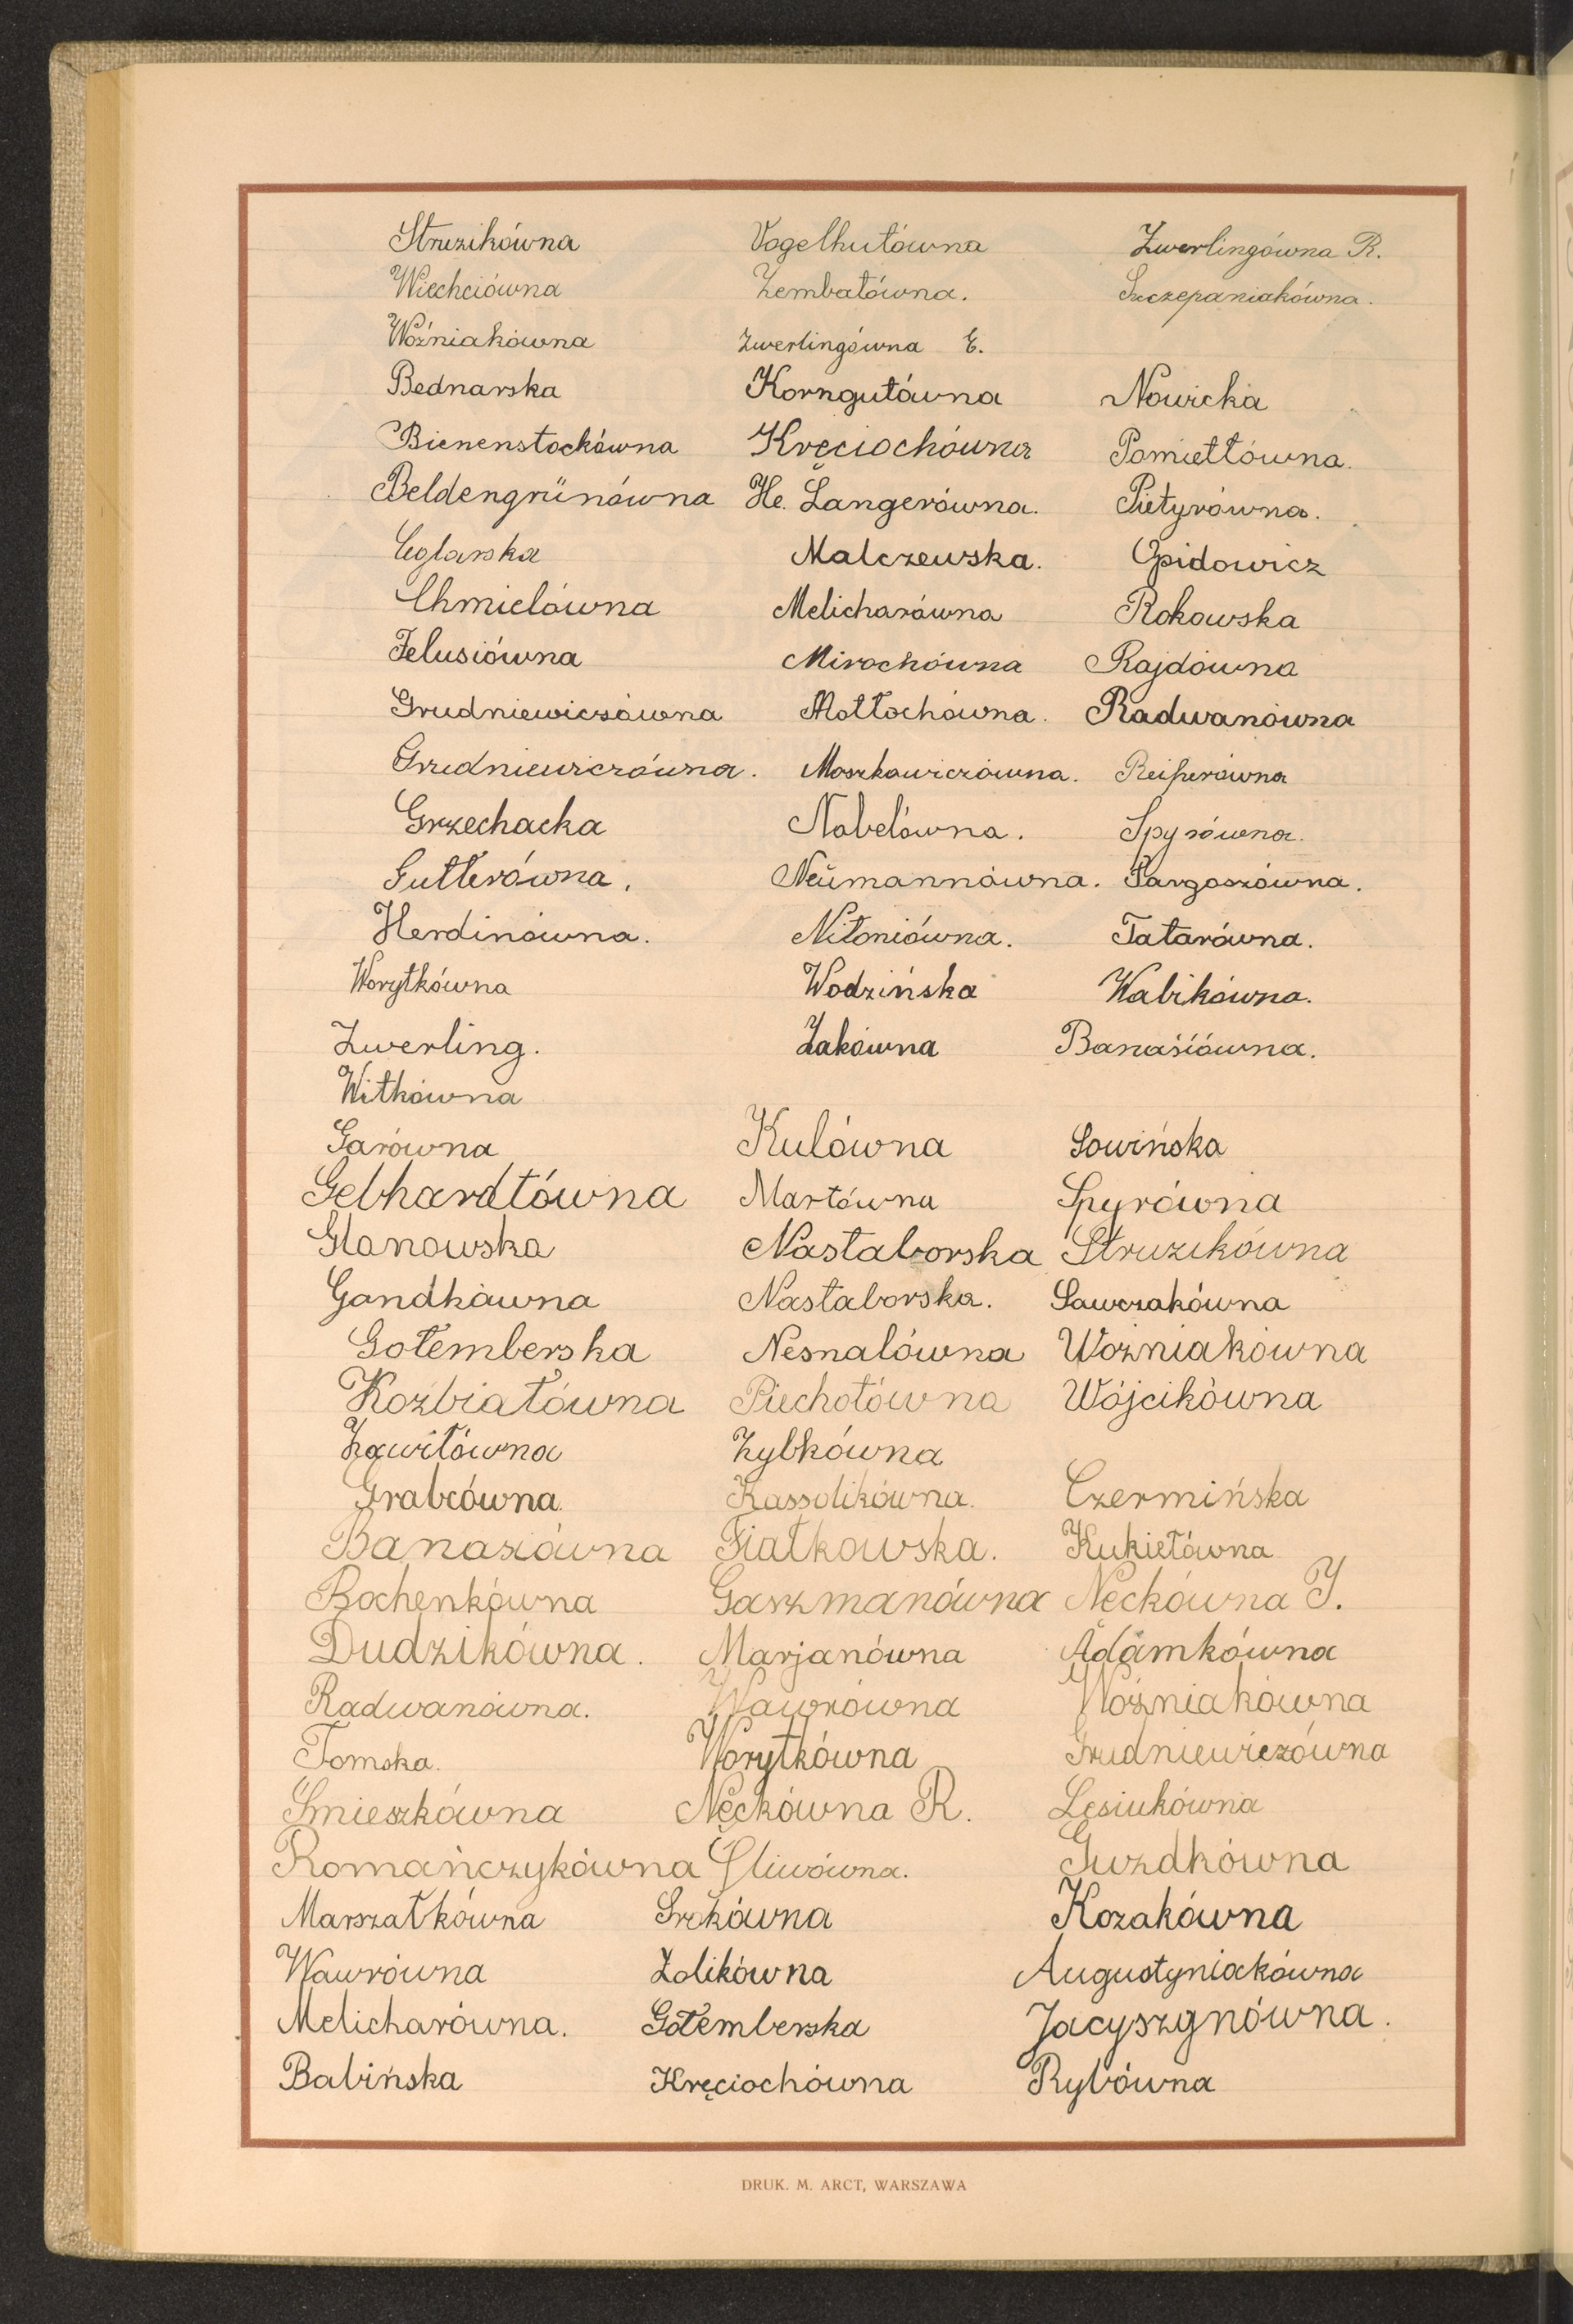 Struzikówna Vogelhutówna Zwerlingówna R.
Wiechciówna Zembatówna. Szczepaniakówna.
Woźniakówna Zwerlingówna E.
Bednarska Korngutówna Nowicka
Bienenstockówna Kręciochówna Pomiettówna.
Beldengrünówna He. Langerówna. Pietyrówna.
Ceglarska Malczewska. Opidowicz
Chmielówna Melicharówna Rokowska
Felusiówna Mirochówna Rajdówna
Grudniewiczówna Mottochówna. Radwanówna
Grudniewiczówna. Moszkowiczówna. Reiferówna
Grzechacka Nobelówna. Spyrówna.
Gutterówna. Neumannówna. Targoszówna.
Herdinówna. Nitoniówna. Tatarówna.
Worytkówna Wodzińska Wabikówna.
Zwerling. Żakówna Banasiówna.
Witkówna
Garówna Kulówna Sowińska
Gebhardtówna Martówna Spyrówna
Glanowska Nastaborska Struzikówna
Gandkówna Nastaborska. Sawczakówna
Gołemberska Nesnalówna Woźniakówna
Koźbiałówna Piechotówna Wójcikówna
Zawiłówna Zybkówna
Grabcówna. Kassolikówna. Czermińska
Banasiówna Fiałkowska. Kukiełówna
Bochenkówna Gaszmanówna Nęckówna J.
Dudzikówna. Marjanówna Adamkówna
Radwanówna. Wawrówna Woźniakówna
Tomska. Worytkówna Grudniewiczówna
Śmieszkówna Nęckówna R. Lesiukówna
Romańczykówna Śliwówna. Guzdkówna
Marszałkówna Srokówna Kozakówna
Wawrówna Zolikówna Augustyniakówna
Melicharówna. Gołemberska Jacyszgnówna.
Babińska Kręciochówna Rybówna
DRUK. M. ARCT, WARSZAWA